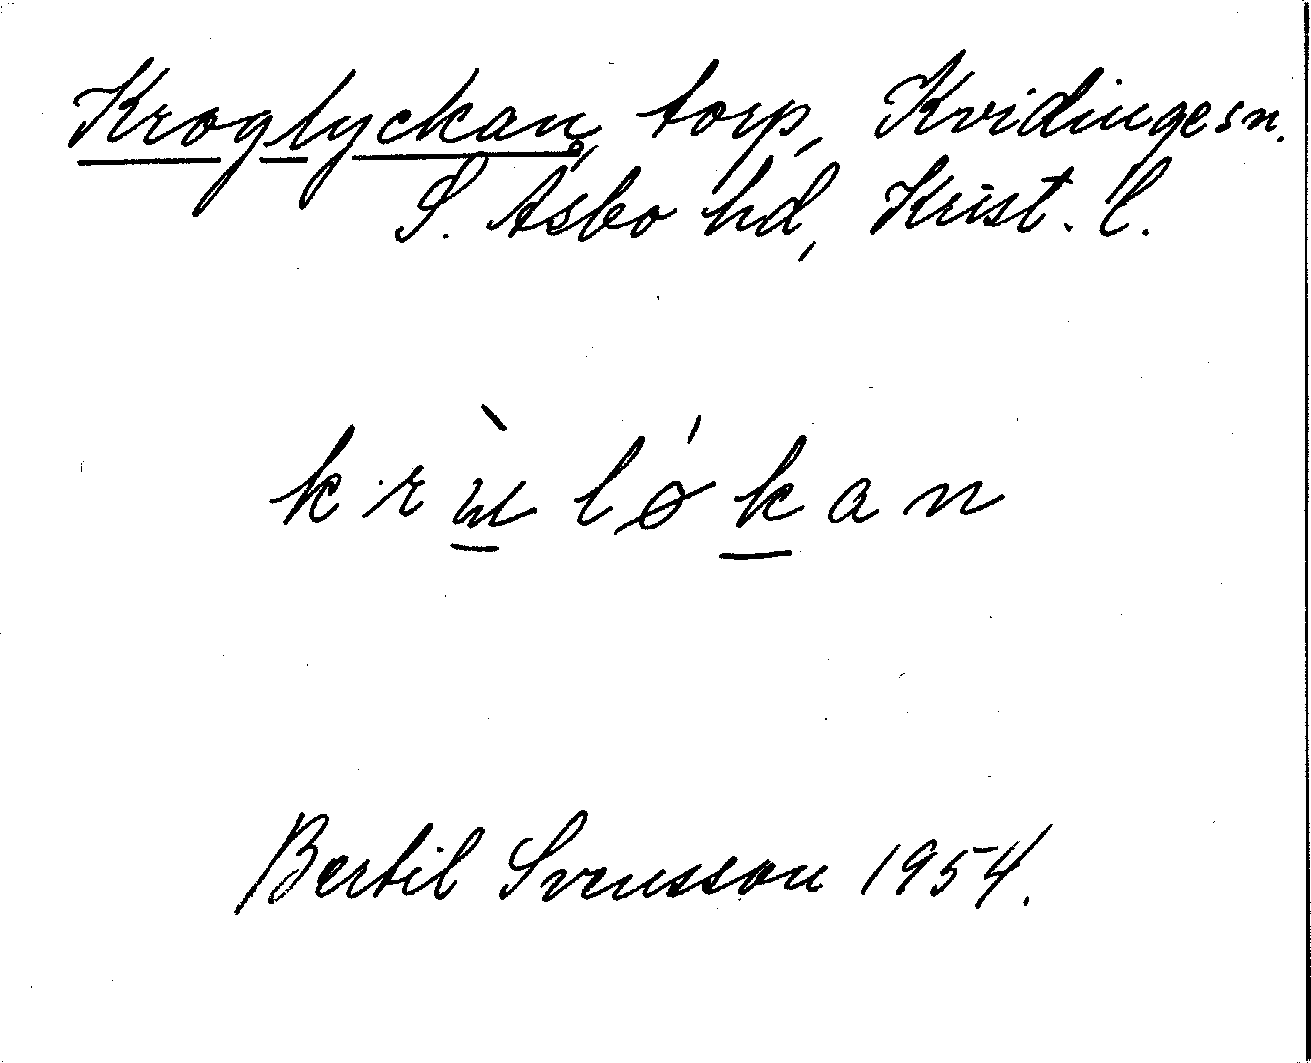 Kroglyckan, torp, Kvidinge sn.
S. Åsbo hd, Krist. l.
krùløkan
Bertil Svensson 1954.